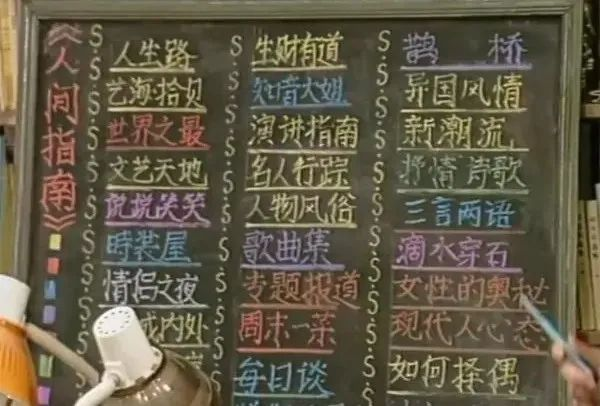 《人间指南》
人生路
艺海拾贝
世界之最
文艺天地
说说笑笑
時装屋
情侣之夜
城内外
生财有道
知音大姐
演讲指南
名人行踪
人物风俗
歌曲集
专题报道
周末一菜
每日谈
鹊 桥
异国风情
新潮流
抒情诗歌
三言两语
滴水穿石
女性的奥秘
现代人心态
如何择偶